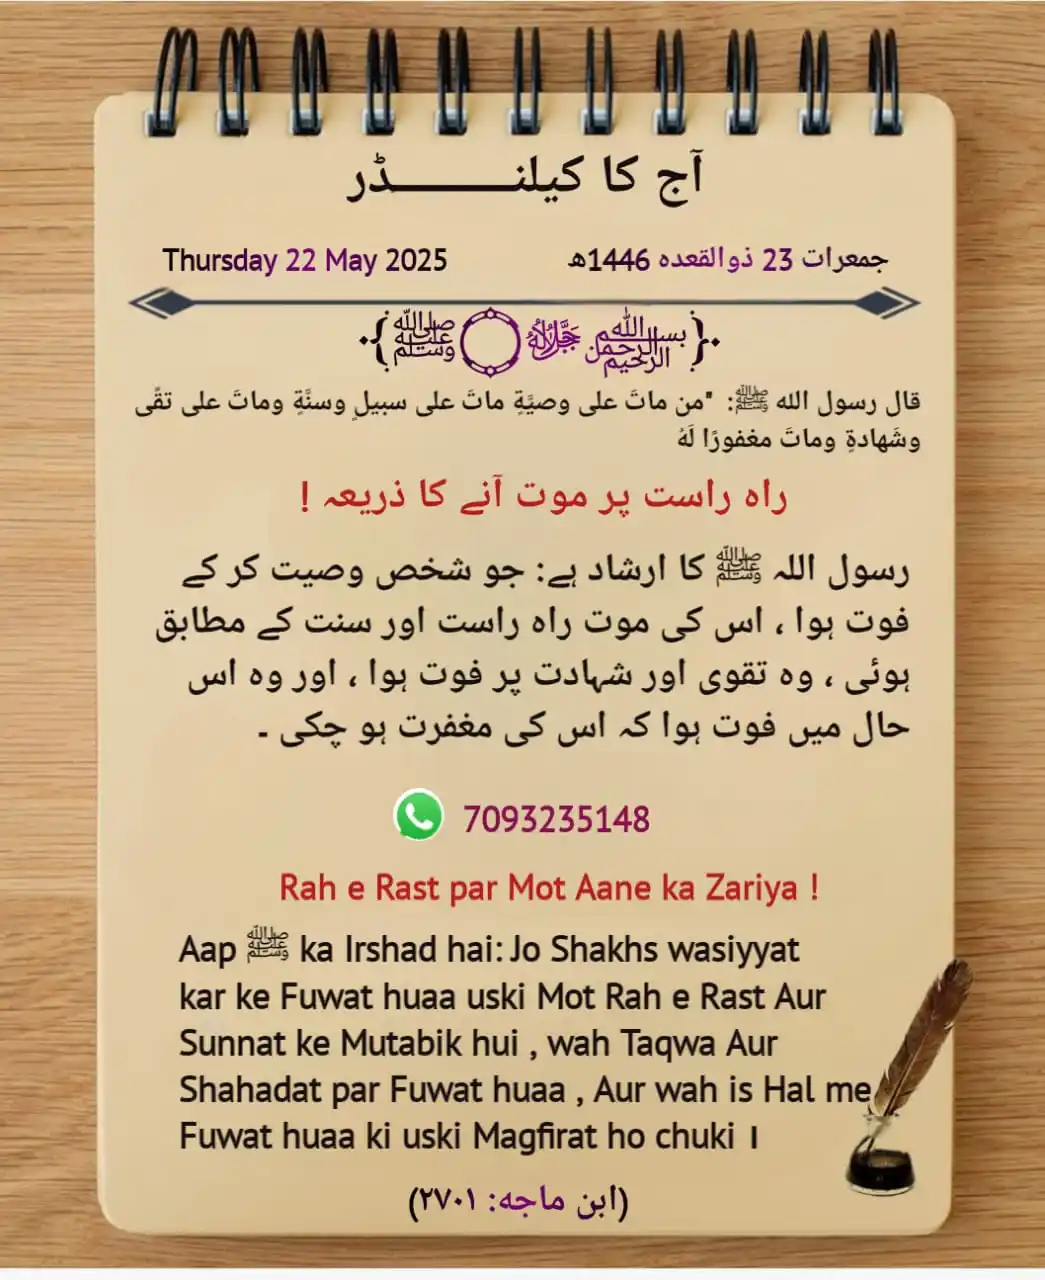 آج کا کیلنـــــــــڈر
Thursday 22 May 2025
جمعرات 23 ذوالقعدہ 1446ھ
﷽ ﷻ ﷺ
قال رسول الله ﷺ: "من ماتَ على وصيَّةٍ ماتَ على سبيلٍ وسنَّةٍ وماتَ على تقًى
وشَهادةٍ وماتَ مغفورًا لَهُ
راہ راست پر موت آنے کا ذریعہ !
رسول اللہ ﷺ کا ارشاد ہے: جو شخص وصیت کر کے
فوت ہوا ، اس کی موت راہ راست اور سنت کے مطابق
ہوئی ، وہ تقوی اور شہادت پر فوت ہوا ، اور وہ اس
حال میں فوت ہوا کہ اس کی مغفرت ہو چکی ۔
7093235148
Rah e Rast par Mot Aane ka Zariya !
Aap ﷺ ka Irshad hai: Jo Shakhs wasiyyat
kar ke Fuwat huaa uski Mot Rah e Rast Aur
Sunnat ke Mutabik hui , wah Taqwa Aur
Shahadat par Fuwat huaa , Aur wah is Hal me
Fuwat huaa ki uski Magfirat ho chuki ।
(ابن ماجه: ٢٧٠١)